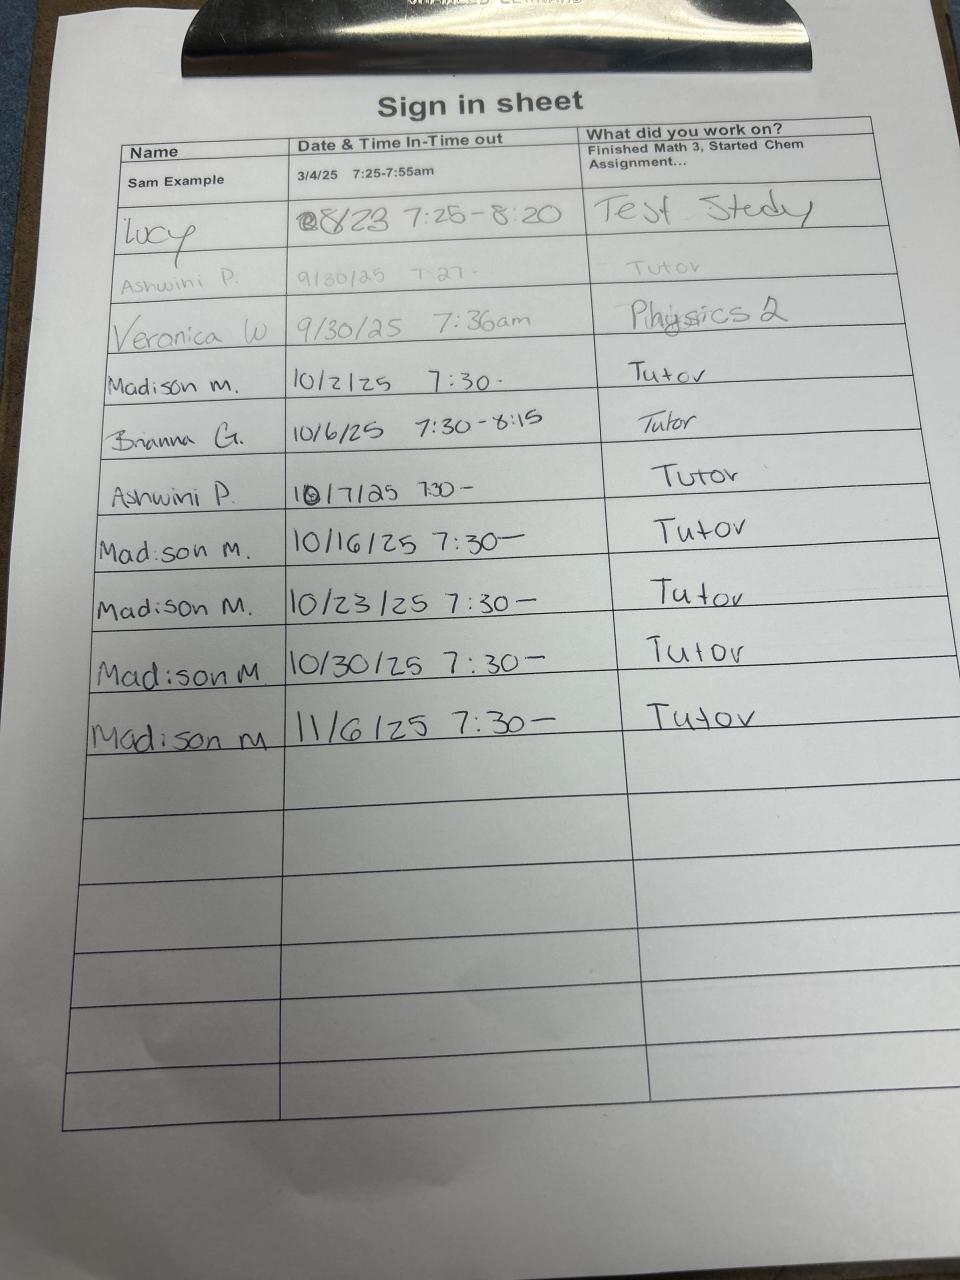 Sign in sheet
Name Date & Time In-Time out What did you work on?
Sam Example 3/4/25 7:25-7:55am Finished Math 3, Started Chem
Assignment...
Lucy 8/23 7:25-8:20 Test Stedy
Ashwini P. 9/30/25 7:27- Tutor
Veronica W 9/30/25 7:36am Physics 2
Madison M. 10/2/25 7:30- Tutor
Brianna G. 10/6/25 7:30-8:15 Tutor
Ashwini P. 10/7/25 7:30- Tutor
Madison M. 10/16/25 7:30- Tutor
Madison M. 10/23/25 7:30- Tutor
Madison M 10/30/25 7:30- Tutor
Madison M 11/6/25 7:30- Tutor